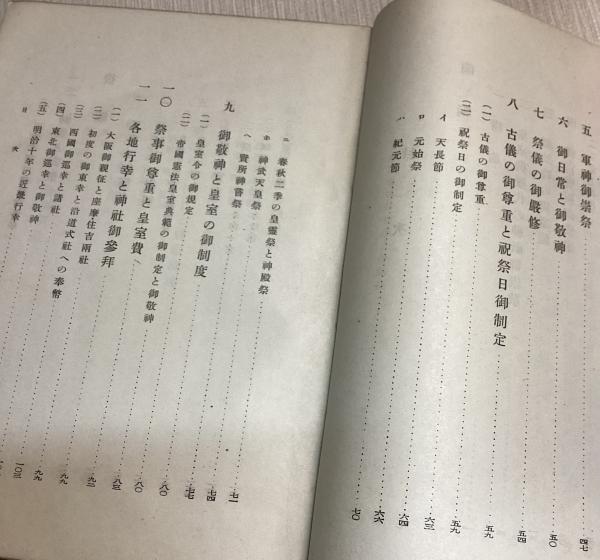 五 軍神御崇祭 四七
六 御日常と御敬神 五〇
七 祭儀の御嚴修 五四
八 古儀の御尊重と祝祭日御制定 五九
(一) 古儀の御尊重 五九
(二) 祝祭日の御制定 六三
イ 天長節 六四
ロ 元始祭 六六
ハ 紀元節 七〇
ニ 春秋二季の皇靈祭と神殿祭
ホ 神武天皇祭
ヘ 賢所神嘗祭
九 御敬神と皇室の御制度 七一
(一) 皇室令の御規定 七四
(二) 帝國憲法皇室典範の御制定と御敬神 七七
一〇 祭事御尊重と皇室費 八〇
一一 各地行幸と神社御參拜 八三
(一) 大阪御親征と座摩住吉兩社 八三
(二) 初度の御東幸と沿道式社への奉幣 九二
(三) 西國御巡幸と諸社 九九
(四) 東北御巡幸と御敬神 九九
(五) 明治十年の近畿行幸 一〇三
目次